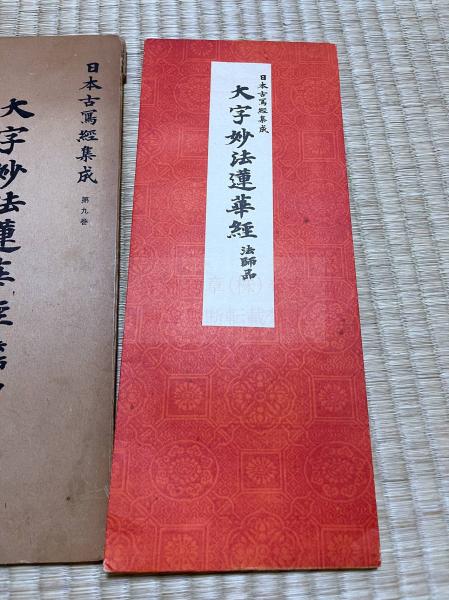 日本古寫經集成
大字妙法蓮華經 法師品
日本古寫經集成 第九卷
大字妙法蓮華經